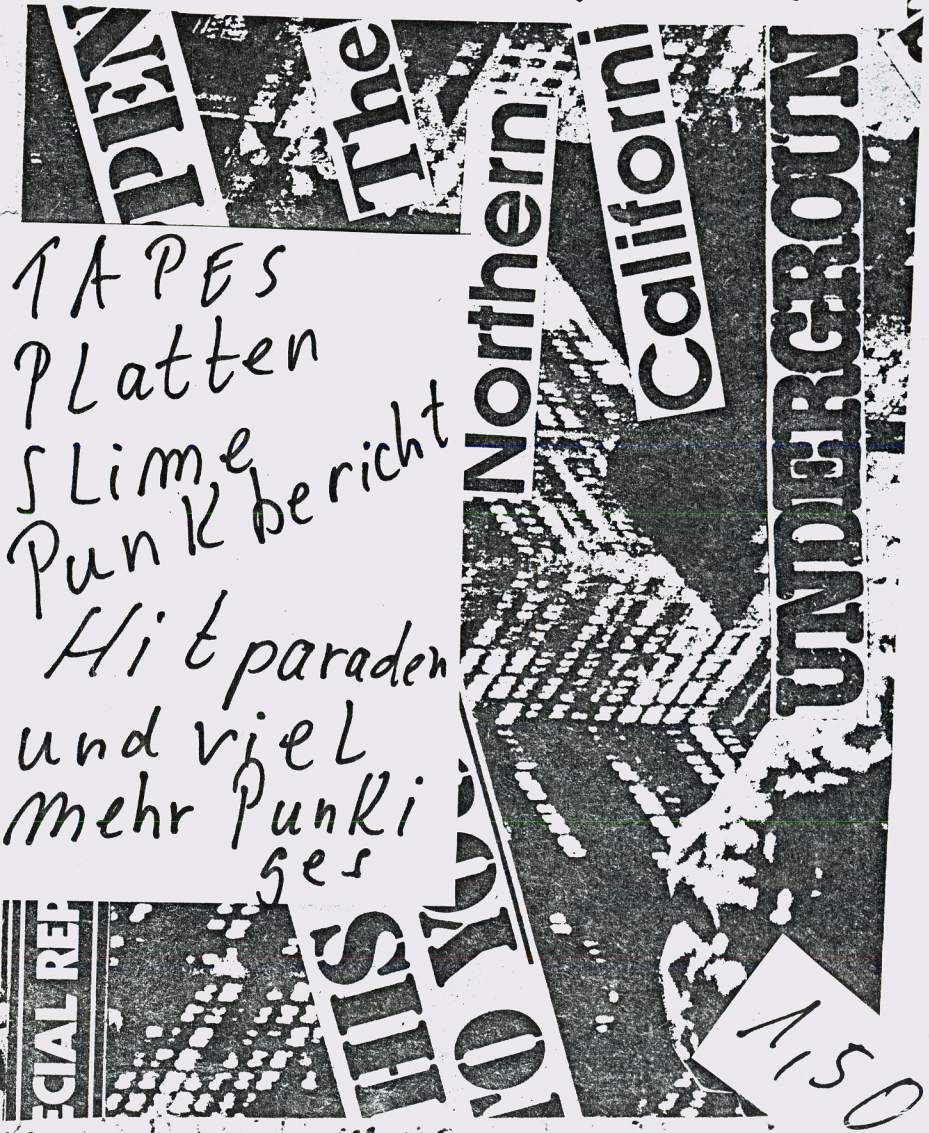 PEN
The
Northern
Californi
UNDERGROUN
TAPES
PLatten
SLime
Punkbericht
Hitparaden
und viel
mehr Punki
ges
ECIAL REP
HIS
TO YO
1,50